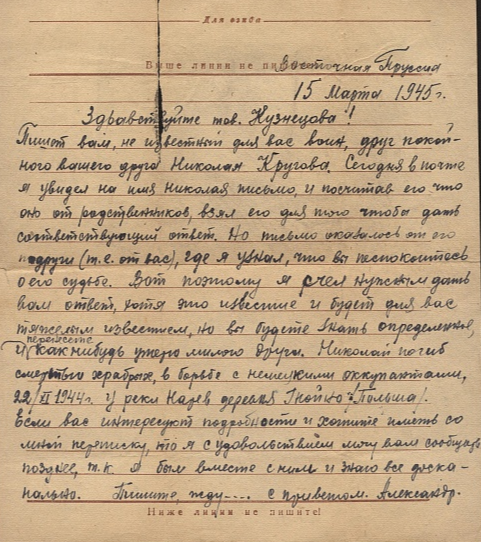 Для сгиба
Выше линии не пишите
Восточная Пруссия
15 Марта 1945 г.
Здравствуйте тов. Кузнецова!
Пишет вам, не известный для вас воин, друг покой-
ного вашего друга Николая Кругова. Сегодня в почте
я увидел на имя Николая письмо, и посчитав его что
оно от родственников, взял его для того чтобы дать
соответствующий ответ. Но письмо оказалось от его
подруги (т.е. от вас), где я узнал, что вы беспокоитесь
о его судьбе. Вот поэтому я счел нужным дать
вам ответ, хотя это известие и будет для вас
тяжелым известием, но вы будете знать определенно,
перенесете
и как нибудь утерю милого друга. Николай погиб
смертью храбрых, в борьбе с немецкими оккупантами,
22/XI 1944г. у реки Нарев деревня Гнойно /Польша/.
Если вас интересуют подробности и хотите иметь со
мной переписку, то я с удовольствием могу вам сообщить
позднее, т.к. я был вместе с ним и знаю все доска-
нально. Пишите, жду.... с приветом. Александр.
Ниже линии не пишите!